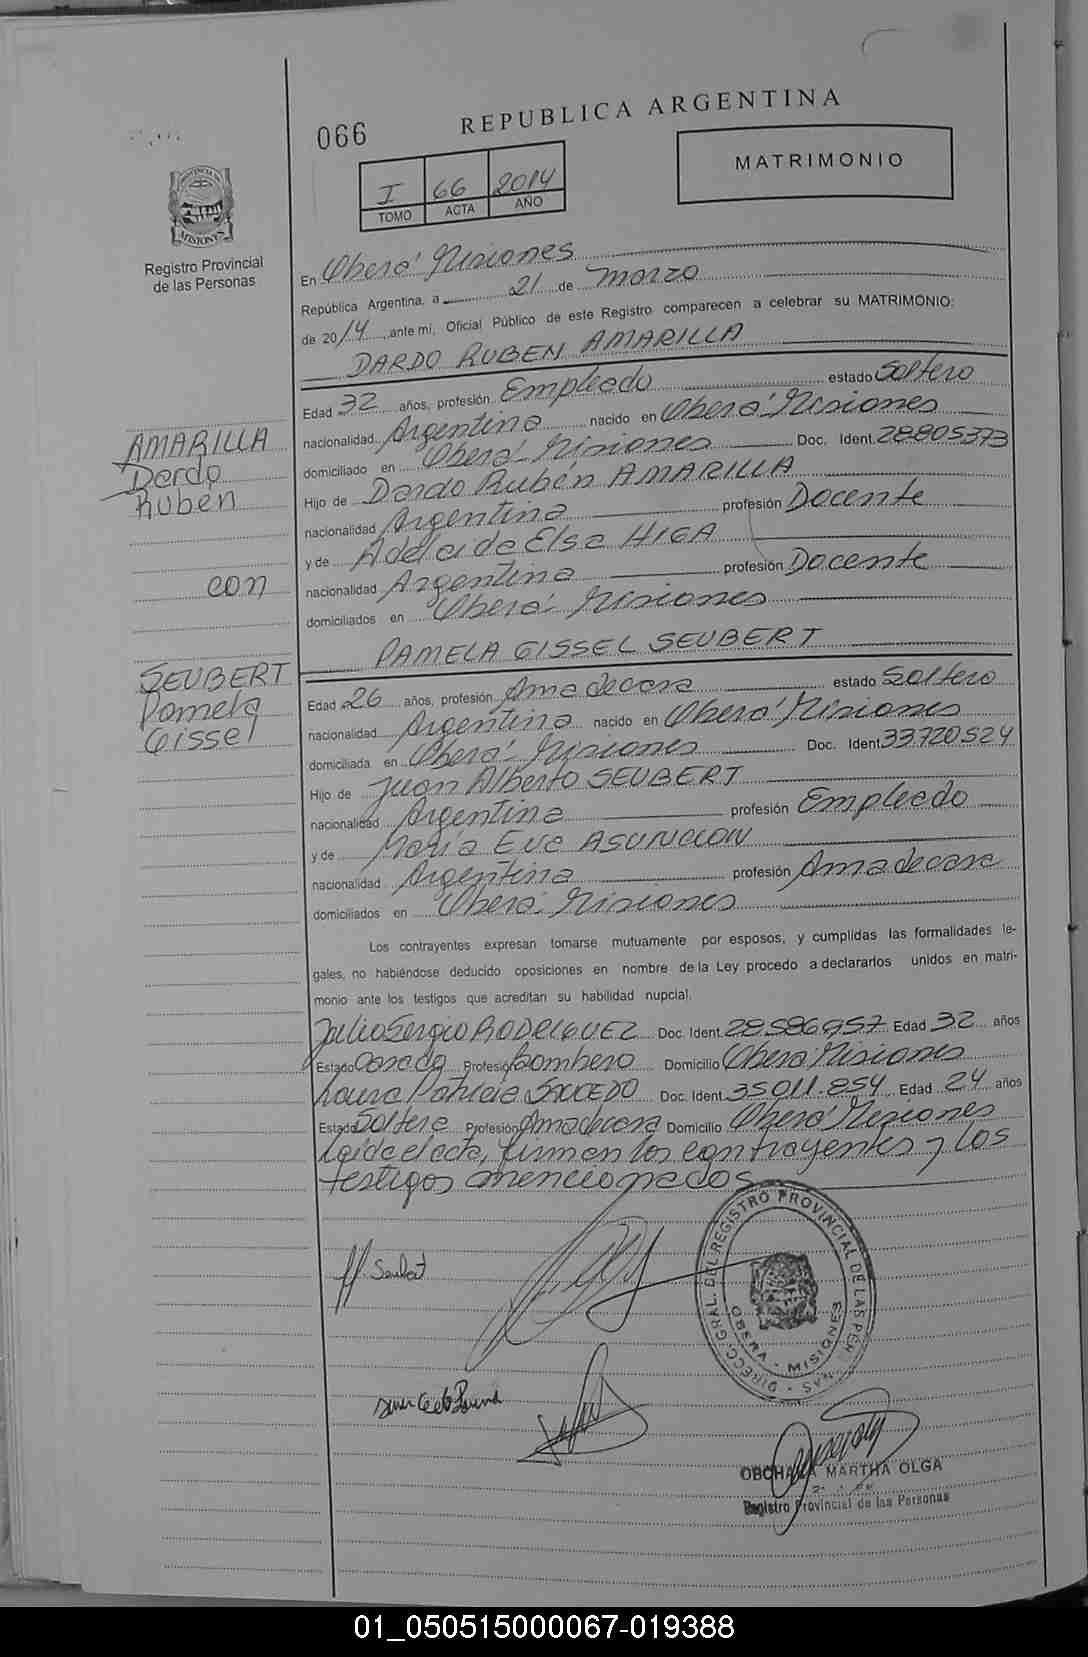 066
REPUBLICA ARGENTINA
MATRIMONIO
I 66 2014
TOMO ACTA AÑO
PROVINCIA DE
MISIONES
Registro Provincial
de las Personas
En Oberá Misiones
República Argentina, a 21 de Marzo
de 2014, ante mi, Oficial Público de este Registro comparecen a celebrar su MATRIMONIO:
DARDO RUBEN AMARILLA
Edad 32 años, profesión Empleado estado Soltero
nacionalidad Argentina nacido en Oberá Misiones
domiciliado en Oberá Misiones Doc. Ident. 28805373
Hijo de Dardo Rubén AMARILLA
nacionalidad Argentina profesión Docente
y de Adelaide Elsa HIGA
nacionalidad Argentina profesión Docente
domiciliados en Oberá Misiones
PAMELA GISSEL SEUBERT
AMARILLA
Dardo
Ruben
con
SEUBERT
Pamela
Gissel
Edad 26 años, profesión Ama de casa estado Soltera
nacionalidad Argentina nacido en Oberá Misiones
domiciliada en Oberá Misiones Doc. Ident 33720524
Hijo de Juan Alberto SEUBERT
nacionalidad Argentina profesión Empleado
y de María Eva ASUNCION
nacionalidad Argentina profesión Ama de casa
domiciliados en Oberá Misiones
Los contrayentes expresan tomarse mutuamente por esposos, y cumplidas las formalidades le-
gales, no habiéndose deducido oposiciones en nombre de la Ley procedo a declararlos unidos en matri-
monio ante los testigos que acreditan su habilidad nupcial.
Julio Sergio RODRIGUEZ Doc. Ident. 28586957 Edad 32 años
Estado Casado Profesión Bombero Domicilio Oberá Misiones
Laura Patricia SAUCEDO Doc. Ident. 35011.854 Edad 24 años
Estado Soltera Profesión Ama de casa Domicilio Oberá Misiones
Leída el acta, firman los contrayentes y los
testigos mencionados
DIRECC. GRAL. DEL REGISTRO PROVINCIAL DE LAS PERSONAS
OBERA - MISIONES
MARTHA OLGA
Registro Provincial de las Personas
01_050515000067-019388